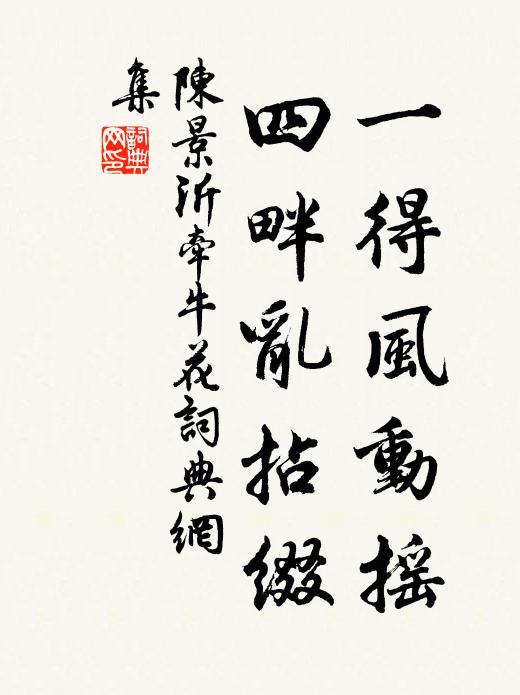 一得風動搖
四畔亂拈綴
陳景沂牽牛花詞典網
集
詞典網印